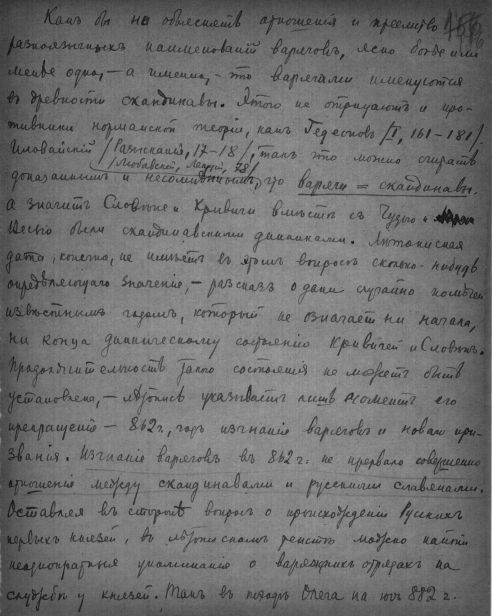 Какъ бы ни объяснять отношенія и преемство
разноязычныхъ наименованій варяговъ, ясно более или
менее одно, — а именно, — что варягами именуются
въ древности скандинавы. Этого не отрицаютъ и про-
тивники норманской теоріи, какъ Гедеоновъ /I, 161-181/,
Иловайскій /Разысканія, 17-18/, такъ что можно считать
/Любавскій, Лекціи, 78/
доказаннымъ и несомненнымъ, что варяги = скандинавы.
а значитъ Словѣне и Кривичи вместе съ Чудью и
Весью были скандинавскими данниками. Лѣтописная
дата, конечно, не имѣетъ въ этомъ вопросѣ сколько-нибудь
опредѣляющаго значенія, — разсказъ о дани случайно помѣченъ
извѣстнымъ годомъ, который не означаетъ ни начала,
ни конца данническому состоянію Кривичей и Словѣнъ.
Продолжительность такого состоянія не можетъ быть
установлена, — лѣтопись указываетъ лишь моментъ его
прекращенія — 862 г., годъ изгнанія варяговъ и новаго при-
званія. Изгнаніе варяговъ въ 862 г. не прервало совершенно
отношеній между скандинавами и русскими славянами.
Оставляя въ сторонѣ вопросъ о происхожденіи Русскихъ
первыхъ князей, въ лѣтописномъ разсказѣ можно найти
неоднократныя упоминанія о варяжскихъ отрядахъ на
службѣ у князей. Такъ въ походѣ Олега на югъ 882 г.